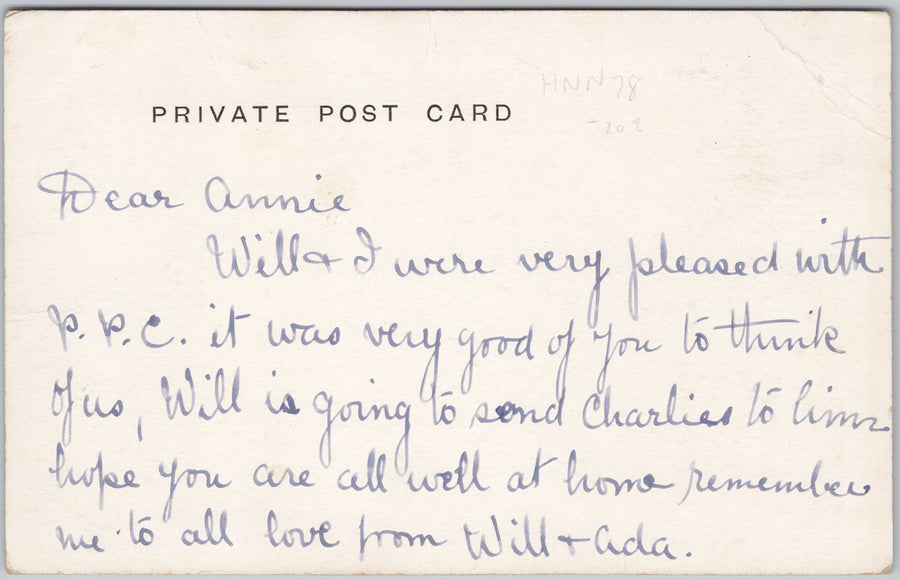 HNN 78
PRIVATE POST CARD
- 20 2
Dear Annie
Will & I were very pleased with
P. P. C. it was very good of you to think
Of us, Will is going to send Charlies to him
hope you are all well at home remember
me to all love from Will & Ada.